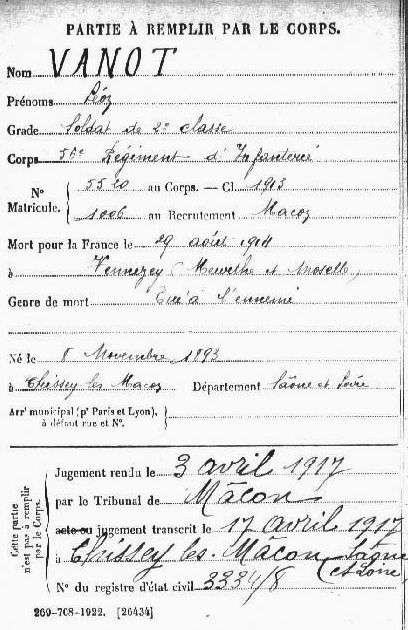 PARTIE À REMPLIR PAR LE CORPS.
Nom VANOT
Prénoms Léoz
Grade Soldat de 2e classe
Corps 56e Régiment d'Infanterie
N° Matricule. { 5520 au Corps. — Cl. 1913
1006 au Recrutement Macoz
Mort pour la France le 29 août 1914
à Vennezey (Meurthe et Moselle)
Genre de mort Tué à l'ennemi
Né le 8 Novembre 1893
à Chissey les Macoz Département Saône et Loire
Arrt municipal (pr Paris et Lyon),
à défaut rue et N°.
Cette partie n'est pas à remplir par le Corps.
Jugement rendu le 3 avril 1917
par le Tribunal de Mâcon
acte ou jugement transcrit le 17 avril 1917
à Chissey les Mâcon (Saône et Loire
N° du registre d'état civil 3334/8
269-708-1922. [26434]